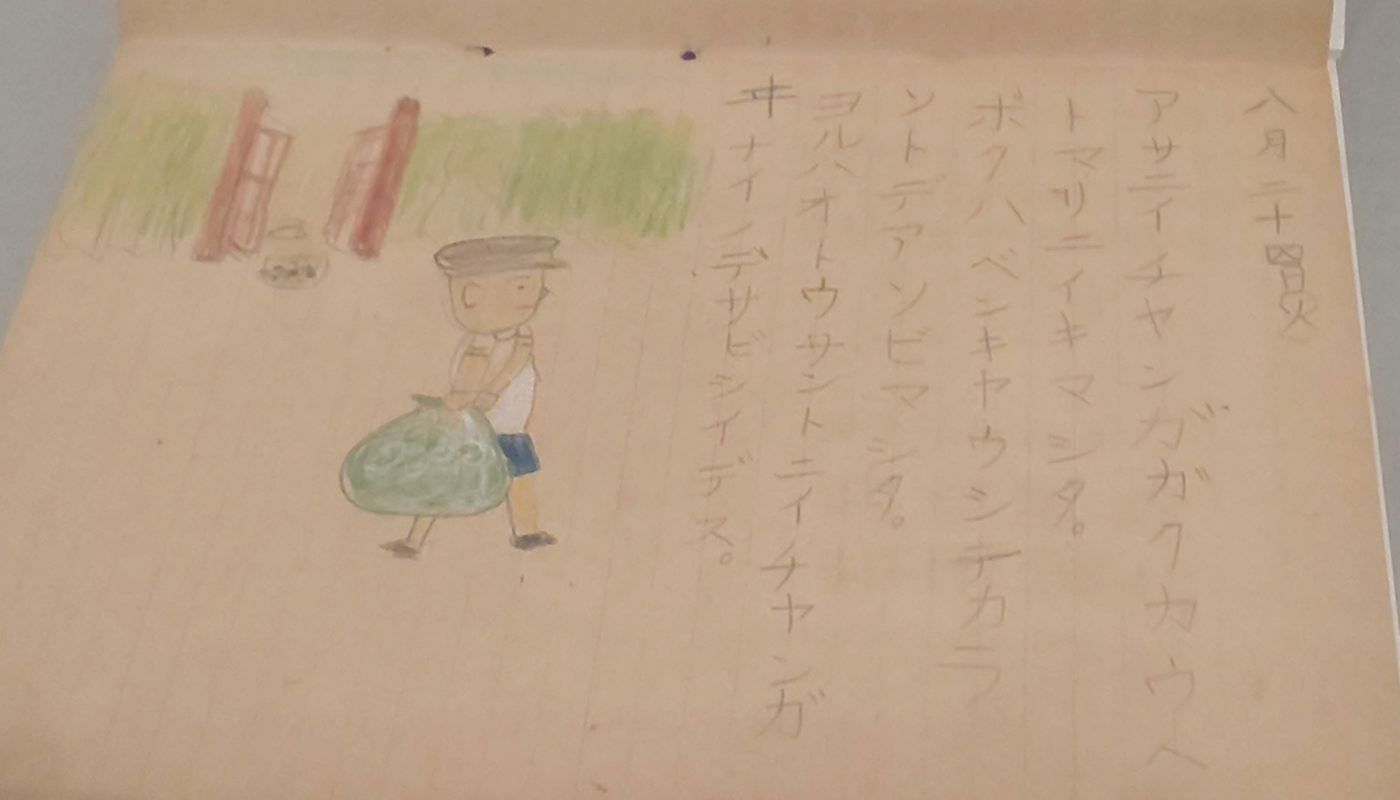 八月二十四日火
アサニイチヤンガガクカウヘ
トマリニイキマシタ。
ボクハベンキヤウシテカラ
ソトデアソビマシタ。
ヨルハオトウサントニイチヤンガ
ヰナイノデサビシイデス。